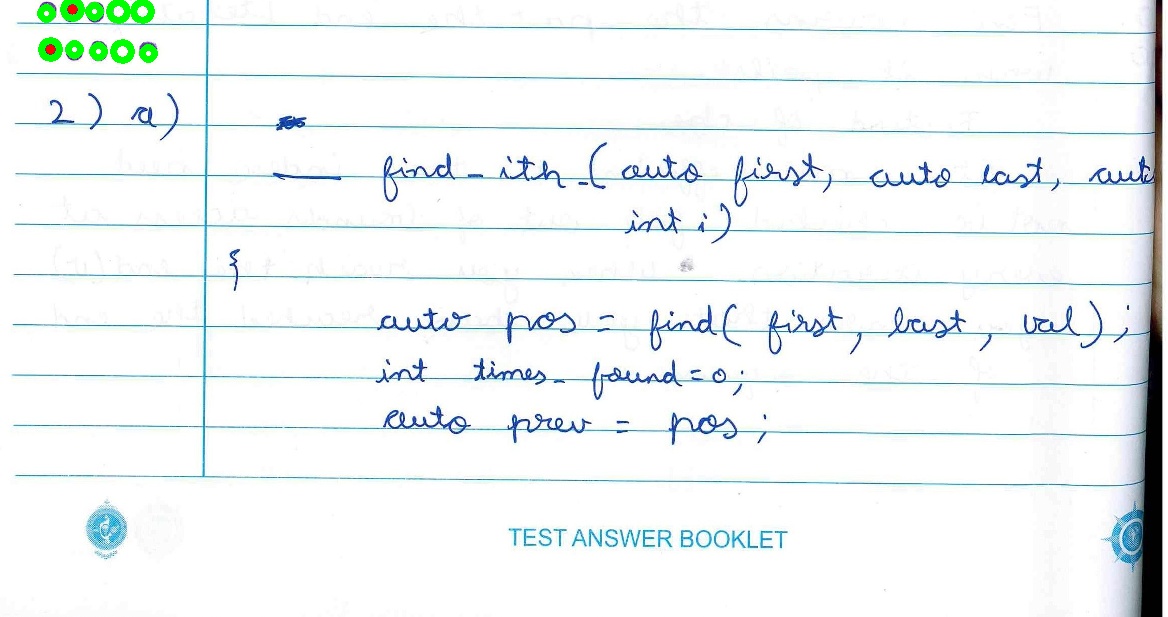 2) a)
find_ith (auto first, auto last,
int i)
{
auto pos = find( first, last, val);
int times_found=0;
auto prev = pos;
TEST ANSWER BOOKLET